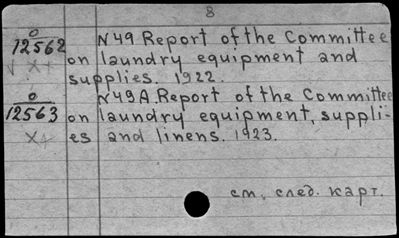 8
0
12562 N49 Report of the Committee
on laundry equipment and
√ X+
supplies. 1922.
0
N49A. Report of the Committee
12563 on laundry equipment, suppli-
X+ es and linens. 1923.
см. след. карт.